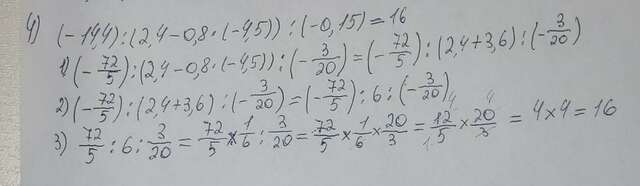 4) (-14,4):(2,4-0,8·(-4,5)):(-0,15)=16
1) (-72/5):(2,4-0,8·(-4,5)):(-3/20)=(-72/5):(2,4+3,6):(-3/20)
2) (-72/5):(2,4+3,6):(-3/20)=(-72/5):6:(-3/20)
3) 72/5:6:3/20=72/5×1/6:3/20=72/5×1/6×20/3=12/5×20/3=4×4=16